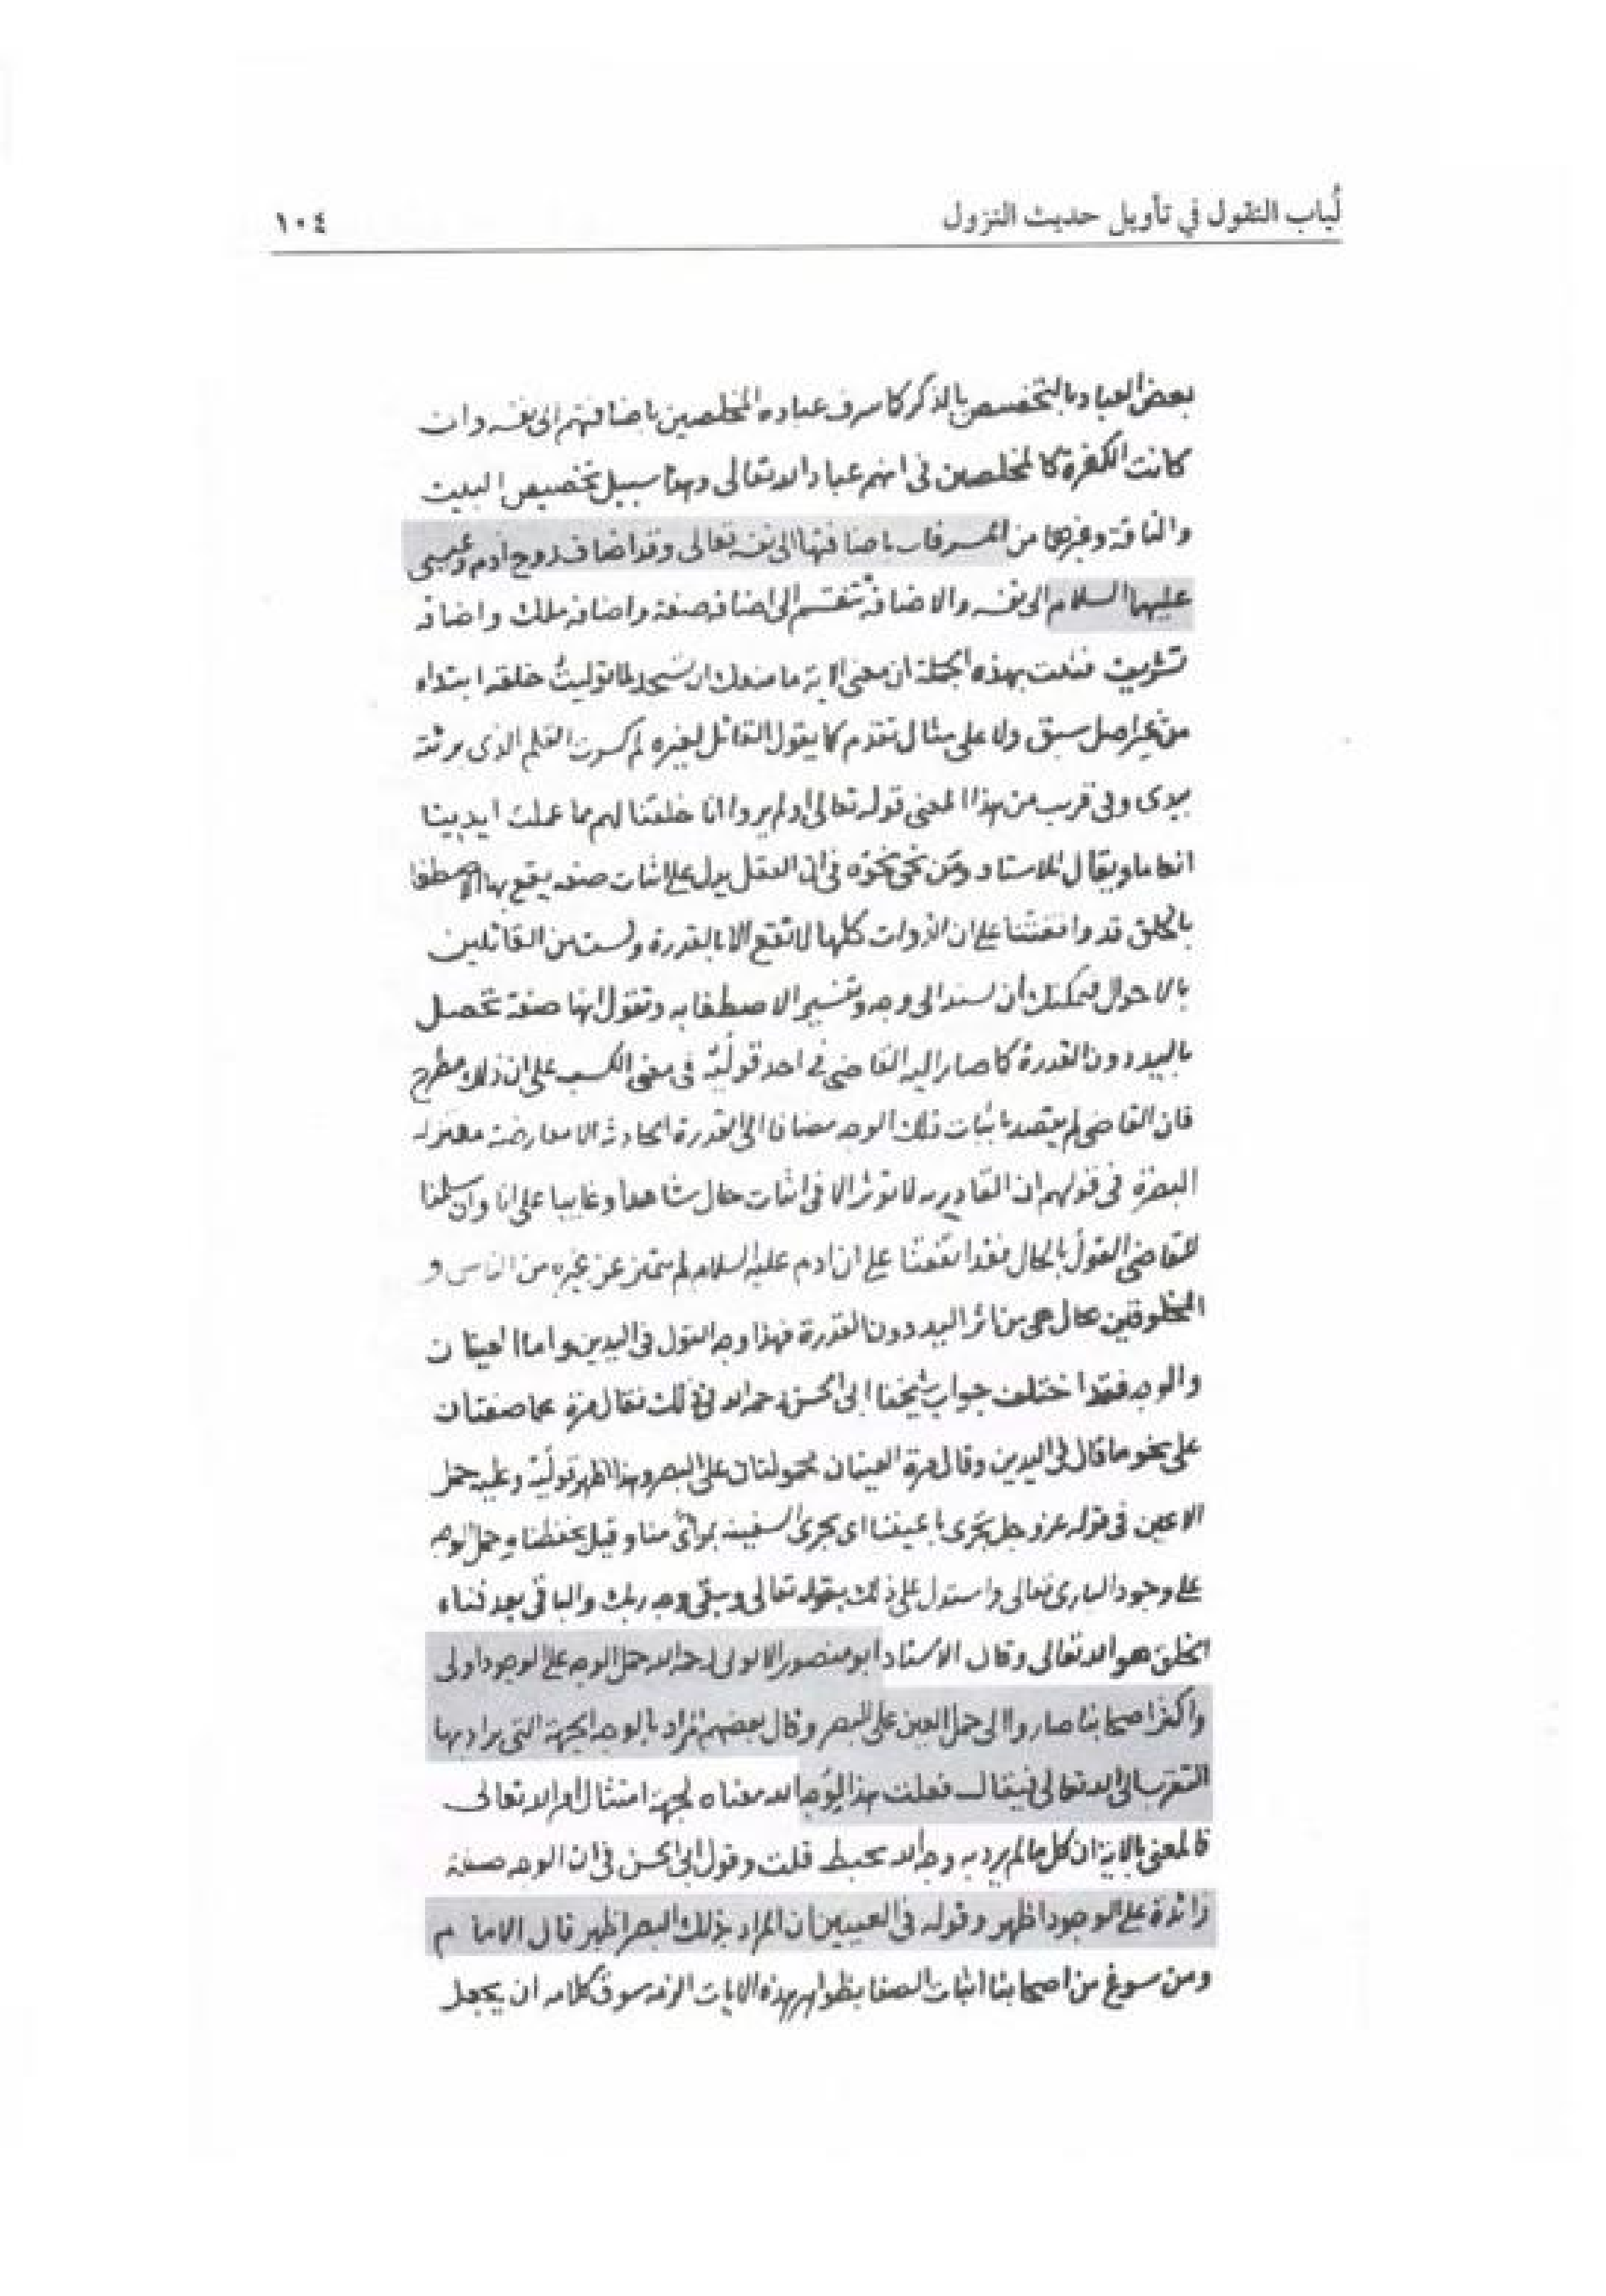 لُباب النقول في تأويل حديث النزول
١٠٤
بعض العباد بالتخصيص بالذكر كما شرف عباده المخلصين باضافتهم الى نفسه وان
كانت الكفرة كالمخلصين في انهم عباد الله تعالى وهذا سبيل تخصيص البيت
والناقة وغيرها من المشرفات باضافتها الى نفسه تعالى وقد اضاف روح ادم وعيسى
عليهما السلام الى نفسه والاضافة تنقسم الى اضافه صفة واضافه ملك واضافه
تشريف فثبت بهذه الجملة ان معنى الاية ما منعك ان تسجد لما توليتُ خلقه ابتداء
من غير اصل سبق ولا على مثال تقدم كما يقول القائل لغيره لم كسرت القلم الذى بريته
بيدى وفى قرب من هذا المعنى قوله تعالى اولم يروا انا خلقنا لهم مما عملت ايدينا
انعاما ويقال للاستاد ومن نحى نحوه في ان العقل يدل على اثبات صفه يقع بها الاصطفا
بالخلق قد وافقتنا على ان الذوات كلها لا تقع الا بالقدرة ولست من القائلين
بالاحوال فيمكنك ان تسند الى وجه وتفسير الاصطفا به وتقول انها صفة تحصل
باليد دون القدرة كما صار اليه القاضي في احد قوليه في معنى الكسب على ان ذلك مطرح
فان القاضي لم يقصد باثبات ذلك الوجه مضافا الى القدرة الحادثة الا معارضة معتزله
البصرة في قولهم ان القادريه لا تؤثر الا في اثبات حال شاهدا وغايبا على انا وان سلمنا
للقاضي القول بالحال فقد اتفقنا على ان ادم عليه السلام لم يتميز عن غيره من الناس و
المخلوقين بحال هى من اثر اليد دون القدرة فهذا وجه القول في اليدين واما العينان
والوجه فقد اختلف جواب شيخنا ابى الحسن رحمه الله في ذلك فقال مرة هما صفتان
على نحو ما قال في اليدين وقال مرة العينان محمولتان على البصر وهذا اظهر قوليه وعليه حمل
الاعين في قوله عز وجل تجرى باعيننا اى تجرى السفينه بمرأى منا وقيل بحفظنا وحمل الوجه
على وجود البارى تعالى واستدل على ذلك بقوله تعالى ويبقى وجه ربك والباقى بعد فناء
الخلق هو الله تعالى وقال الاستاد ابو منصور الايوبى رحمه الله حمل الوجه على الوجود اولى
واكثر اصحابنا صاروا الى حمل العين على البصر وقال بعضهم المراد بالوجه الجهة التى يراد بها
التقرب الى الله تعالى فيقال فعلت هذا لوجه الله معناه لجهة امتثال امر الله تعالى
فالمعنى بالاية ان كل ما لم يرد به وجه الله محبط قلت وقول ابى الحسن في ان الوجه صفة
زائدة على الوجود اظهر وقوله في العينين ان المراد بذلك البصر اظهر قال الامام
ومن سوغ من اصحابنا اثبات الصفا بظواهر هذه الايات الزمه سوق كلامه ان يجعل